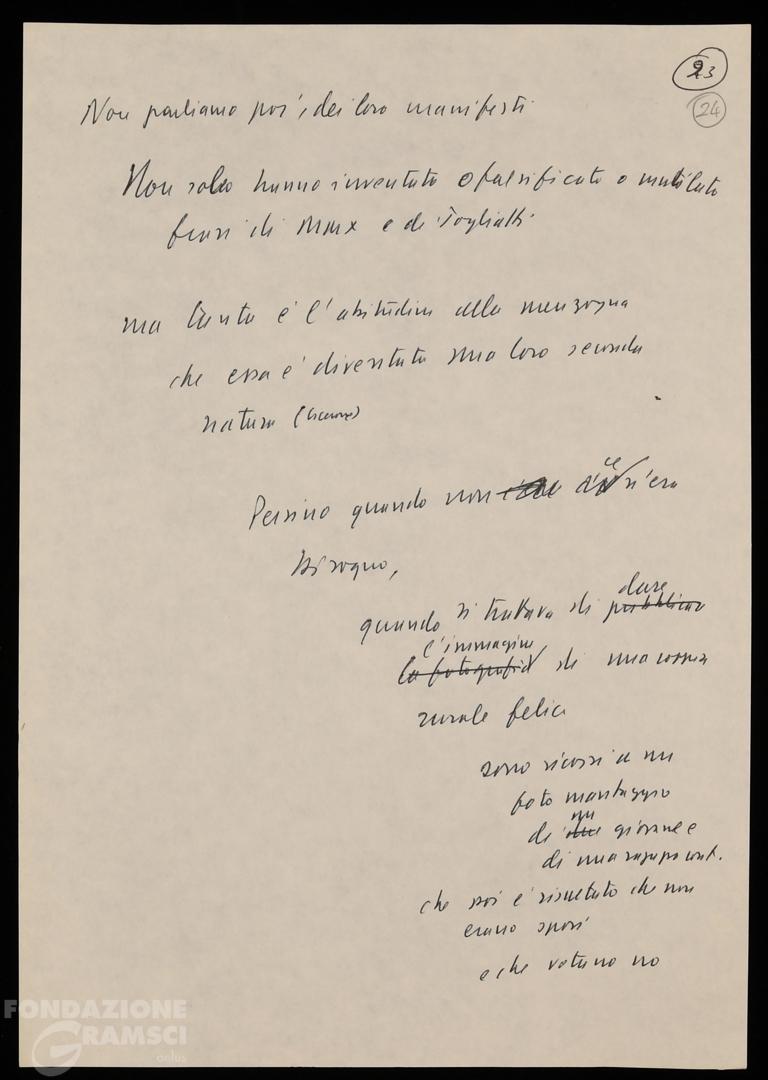 23
24
Non parliamo poi dei loro manifesti
Non solo hanno inventato o falsificato o mutilato
frasi di Marx e di Togliatti
ma tanta è l'abitudine alla menzogna
che essa è diventata una loro seconda
natura
Persino quando non ce n'era
bisogno,
quando si trattava di pubblicare dare
la fotografia l'immagine di una coppia
rurale felice
sono ricorsi a un
foto montaggio
di un giovane e
di una ragazza cont.
che poi è risultato che non
erano sposi
e che votano no
FONDAZIONE
GRAMSCI
onlus